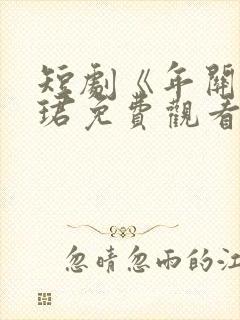 短劇《年關
珺免費觀看
忽晴忽雨的江